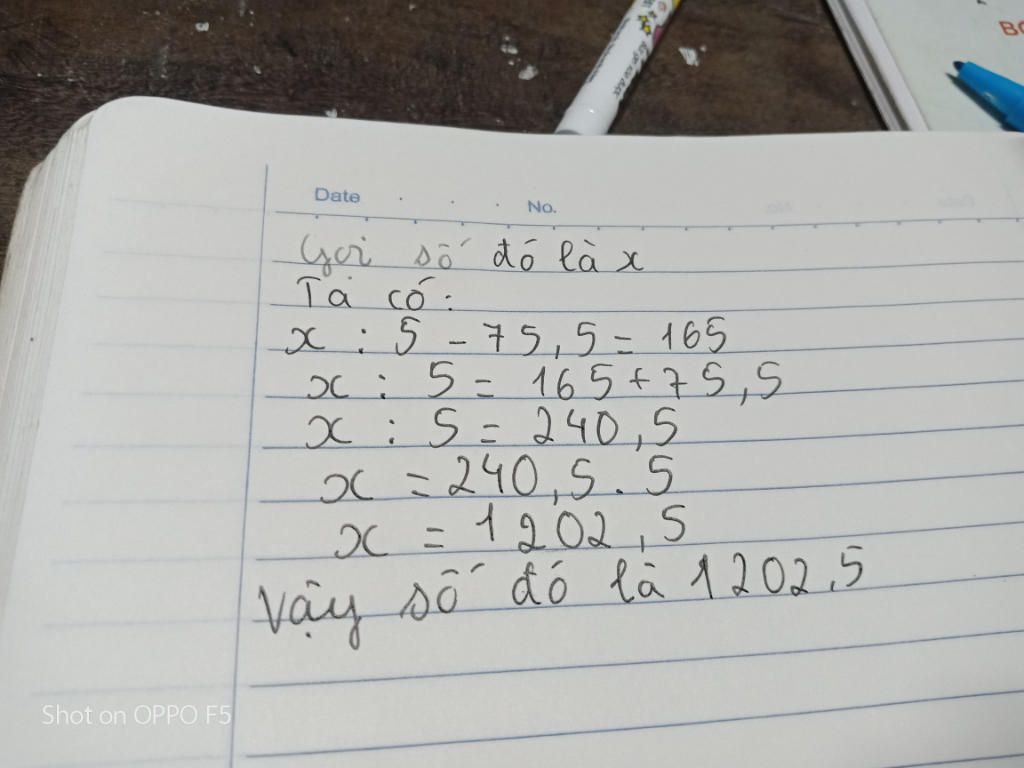 BO
Date . . . No.
Gọi số đó là x
Ta có:
x : 5 - 75,5 = 165
x : 5 = 165 + 75,5
x : 5 = 240,5
x = 240,5 . 5
x = 1202,5
Vậy số đó là 1202,5
Shot on OPPO F5